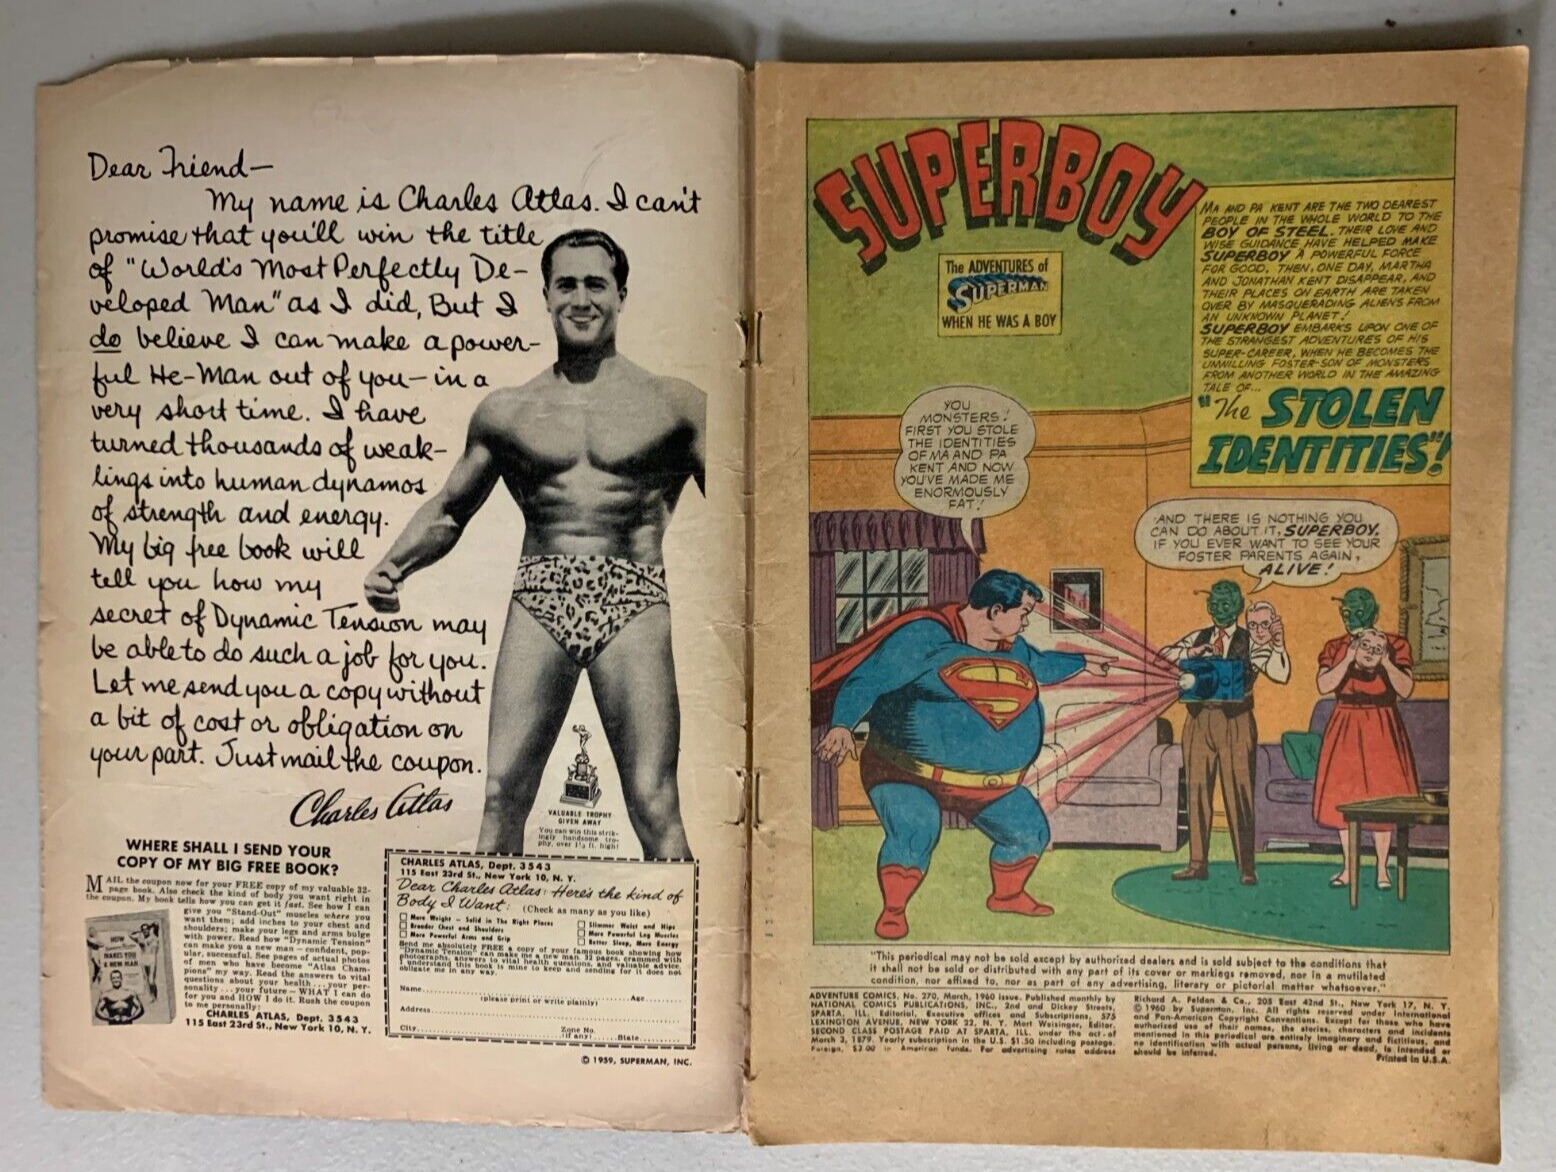 Dear Friend—
My name is Charles Atlas. I can't
promise that you'll win the title
of "World's Most Perfectly De-
veloped Man" as I did, But I
do believe I can make a power-
ful He-Man out of you—in a
very short time. I have
turned thousands of weak-
lings into human dynamos
of strength and energy.
My big free book will
tell you how my
secret of Dynamic Tension may
be able to do such a job for you.
Let me send you a copy without
a bit of cost or obligation on
your part. Just mail the coupon.
Charles Atlas
VALUABLE TROPHY
GIVEN AWAY
You can win this strik-
ingly handsome tro-
phy, over 1½ ft. high!
WHERE SHALL I SEND YOUR
COPY OF MY BIG FREE BOOK?
MAIL the coupon now for your FREE copy of my valuable 32-
page book. Also check the kind of body you want right in
the coupon. My book tells how you can get it fast. See how I can
give you "Stand-Out" muscles where you
want them; add inches to your chest and
shoulders; make your legs and arms bulge
with power. Read how "Dynamic Tension"
can make you a new man — confident, pop-
ular, successful. See pages of actual photos
of men who have become "Atlas Cham-
pions" my way. Read the answers to vital
questions about your health...your per-
sonality...your future—WHAT I can do
for you and HOW I do it. Rush the coupon
to me personally:
CHARLES ATLAS, Dept. 3543
115 East 23rd St., New York 10, N. Y.
CHARLES ATLAS, Dept. 3543
115 East 23rd St., New York 10, N. Y.
Dear Charles Atlas: Here's the kind of
Body I Want: (Check as many as you like)
More Weight – Solid in The Right Places
Broader Chest and Shoulders
More Powerful Arms and Grip
Slimmer Waist and Hips
More Powerful Leg Muscles
Better Sleep, More Energy
Send me absolutely FREE a copy of your famous book showing how
"Dynamic Tension" can make me a new man. 32 pages, crammed with
photographs, answers to vital health questions, and valuable advice.
I understand this book is mine to keep and sending for it does not
obligate me in any way.
Name Age
(please print or write plainly)
Address
City Zone No. (if any) State
© 1959, SUPERMAN, INC.
SUPERBOY
The ADVENTURES of
SUPERMAN
WHEN HE WAS A BOY
MA AND PA KENT ARE THE TWO DEAREST
PEOPLE IN THE WHOLE WORLD TO THE
BOY OF STEEL. THEIR LOVE AND
WISE GUIDANCE HAVE HELPED MAKE
SUPERBOY A POWERFUL FORCE
FOR GOOD. THEN, ONE DAY, MARTHA
AND JONATHAN KENT DISAPPEAR, AND
THEIR PLACES ON EARTH ARE TAKEN
OVER BY MASQUERADING ALIENS FROM
AN UNKNOWN PLANET!
SUPERBOY EMBARKS UPON ONE OF
THE STRANGEST ADVENTURES OF HIS
SUPER-CAREER, WHEN HE BECOMES THE
UNWILLING FOSTER-SON OF MONSTERS
FROM ANOTHER WORLD IN THE AMAZING
TALE OF...
"The STOLEN
IDENTITIES"!
YOU
MONSTERS!
FIRST YOU STOLE
THE IDENTITIES
OF MA AND PA
KENT AND NOW
YOU'VE MADE ME
ENORMOUSLY
FAT!
AND THERE IS NOTHING YOU
CAN DO ABOUT IT, SUPERBOY,
IF YOU EVER WANT TO SEE YOUR
FOSTER PARENTS AGAIN,
ALIVE!
"This periodical may not be sold except by authorized dealers and is sold subject to the conditions that
it shall not be sold or distributed with any part of its cover or markings removed, nor in a mutilated
condition, nor affixed to, nor as part of any advertising, literary or pictorial matter whatsoever."
ADVENTURE COMICS, No. 270, March, 1960 issue. Published monthly by
NATIONAL COMICS PUBLICATIONS, INC., 2nd and Dickey Streets,
SPARTA, ILL. Editorial, Executive offices and Subscriptions, 575
LEXINGTON AVENUE, NEW YORK 22, N. Y. Mort Weisinger, Editor.
SECOND CLASS POSTAGE PAID AT SPARTA, ILL. under the act of
March 3, 1879. Yearly subscription in the U.S. $1.50 including postage.
Foreign, $3.00 in American funds. For advertising rates address
Richard A. Feldon & Co., 205 East 42nd St., New York 17, N. Y.
© 1960 by Superman, Inc. All rights reserved under International
and Pan-American Copyright Conventions. Except for those who have
authorized use of their names, the stories, characters and incidents
mentioned in this periodical are entirely imaginary and fictitious, and
no identification with actual persons, living or dead, is intended or
should be inferred.
Printed in U.S.A.